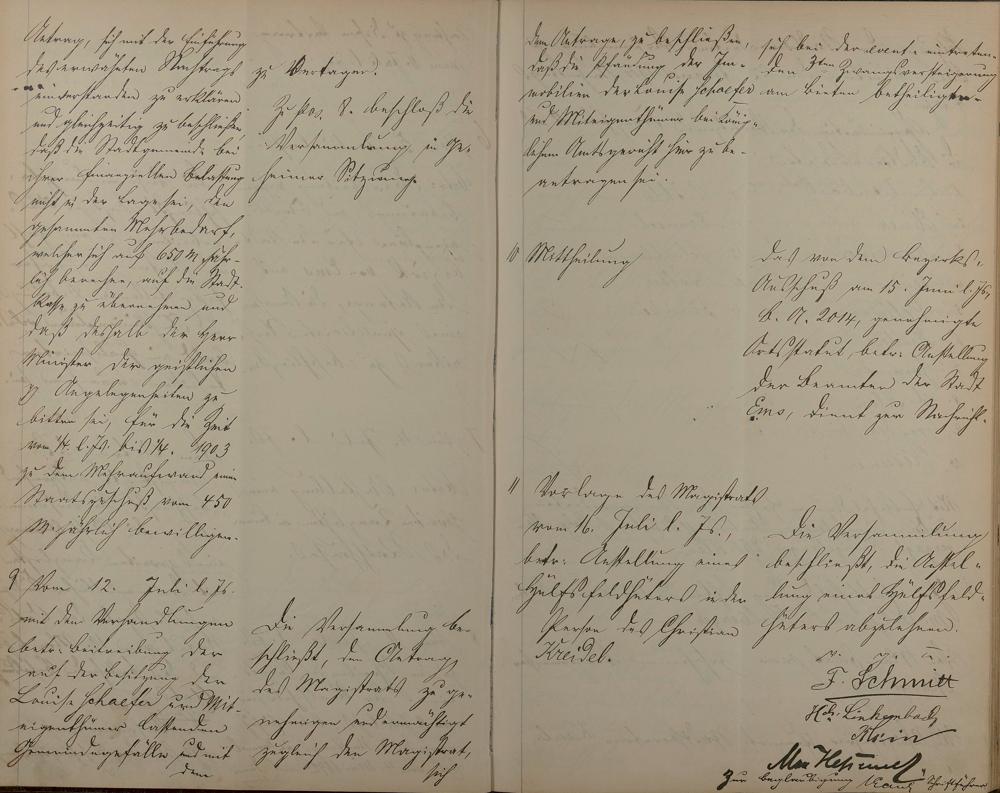 Antrag, sich mit der Einführung
des erwähnten Nachtrags
einverstanden zu erklären
und gleichzeitig zu beschließen,
daß die Stadtgemeinde bei
ihrer finanziellen Belastung
nicht in der Lage sei, den
gesammten Mehrbedarf,
welcher sich auf 650 M jähr-
lich berechne, auf die Stadt-
kasse zu übernehmen und
daß deshalb der Herr
Minister der geistlichen
pp Angelegenheiten zu
bitten sei, für die Zeit
vom 1/4. l. Js. bis 1/4. 1903
zu dem Mehraufwand einen
Staatszuschuß vom 450
M. jährlich bewilligen.
zu vertagen.
Zu pos. 8. beschloß die
Versammlung in Ge-
heimer Sitzung
9 Vom 12. Juli l. Js.
mit den Verhandlungen
betr: Beitreibung der
auf der Besitzung der
Louise Schaefer und Mit-
eigenthümer lastenden
Gemeindegefälle und mit
dem
Die Versammlung be-
schließt, den Antrag
des Magistrats zu ge-
nehmigen und ermächtigt
zugleich den Magistrat,
sich
dem Antrage, zu beschließen,
daß die Pfändung der Im-
mobilien der Louise Schaefer
und Miteigenthümer bei König-
lichem Amtsgericht hier zu be-
antragen sei.
sich bei der event. eintreten-
den Zwangsversteigerung
am Bieten betheiligen
10 Mittheilung
Das von dem Bezirks-
Ausschuß am 15. Juni l. Js,
B. A. 2014, genehmigte
Ortsstatut, betr: Anstellung
der Beamten der Stadt
Ems, dient zur Nachricht.
11 Vorlage des Magistrats
vom 16. Juli l. Js.,
betr: Anstellung eines
Hülfsfeldhüters in der
Person des Christian
Kreidel.
Die Versammlung
beschließt, die Anstel-
lung eines Hülfsfeld-
hüters abzulehnen.
v. g. u.
F. Schmitt
Linkenbach
Zur Beglaubigung Schriftführer